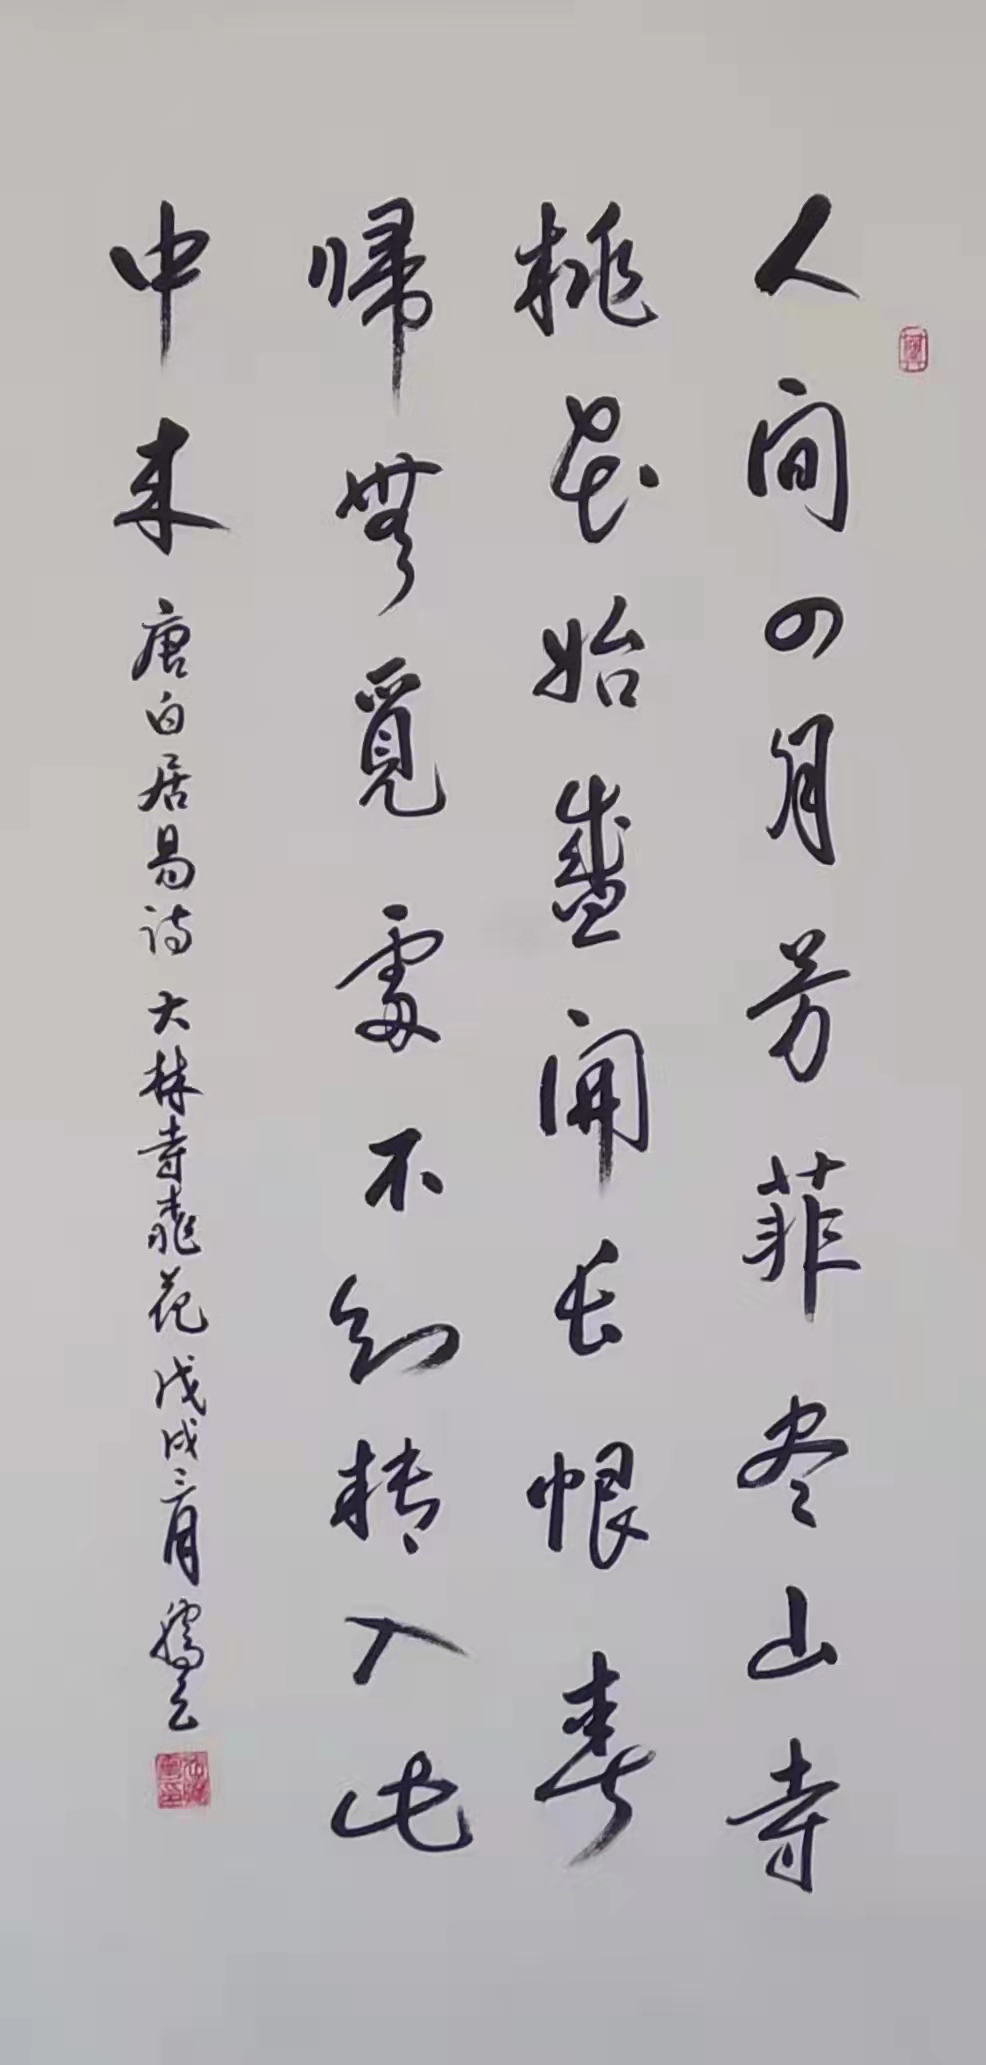 人间四月芳菲尽山寺
桃花始盛開长恨春
歸無覓處不知转入此
中来
唐白居易诗 大林寺桃花 戊戌三月